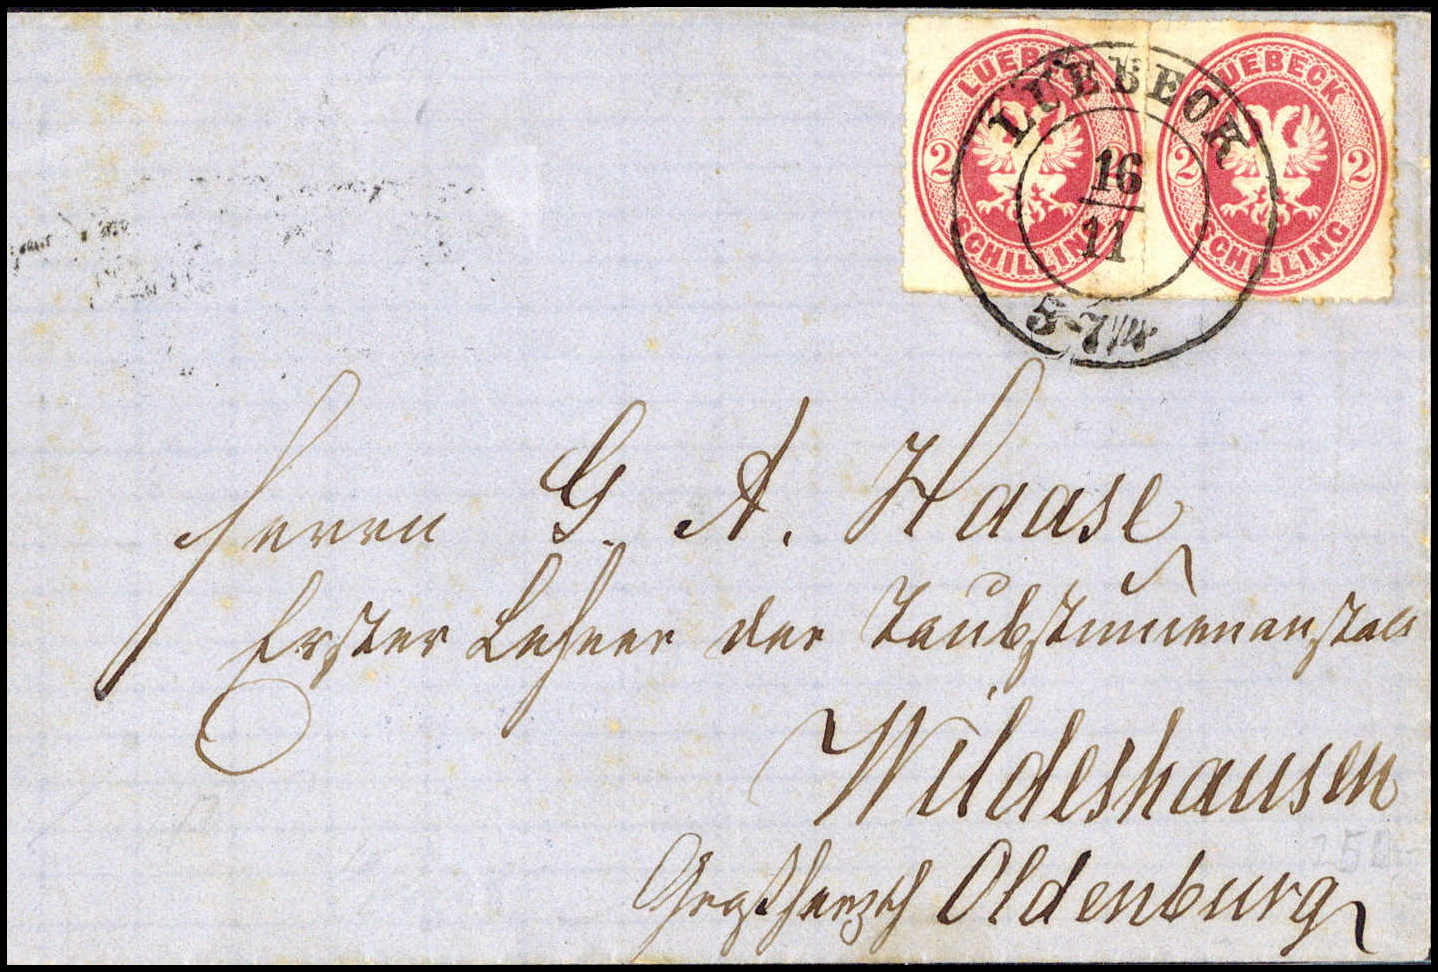 LUEBECK
2 2
SCHILLING
LUEBECK
2 2
SCHILLING
LUEBECK
16
11
5-7 1/4
Herrn G. A. Haase,
Erster Lehrer der Taubstummenanstalt
Wildeshausen
Großherzth Oldenburg